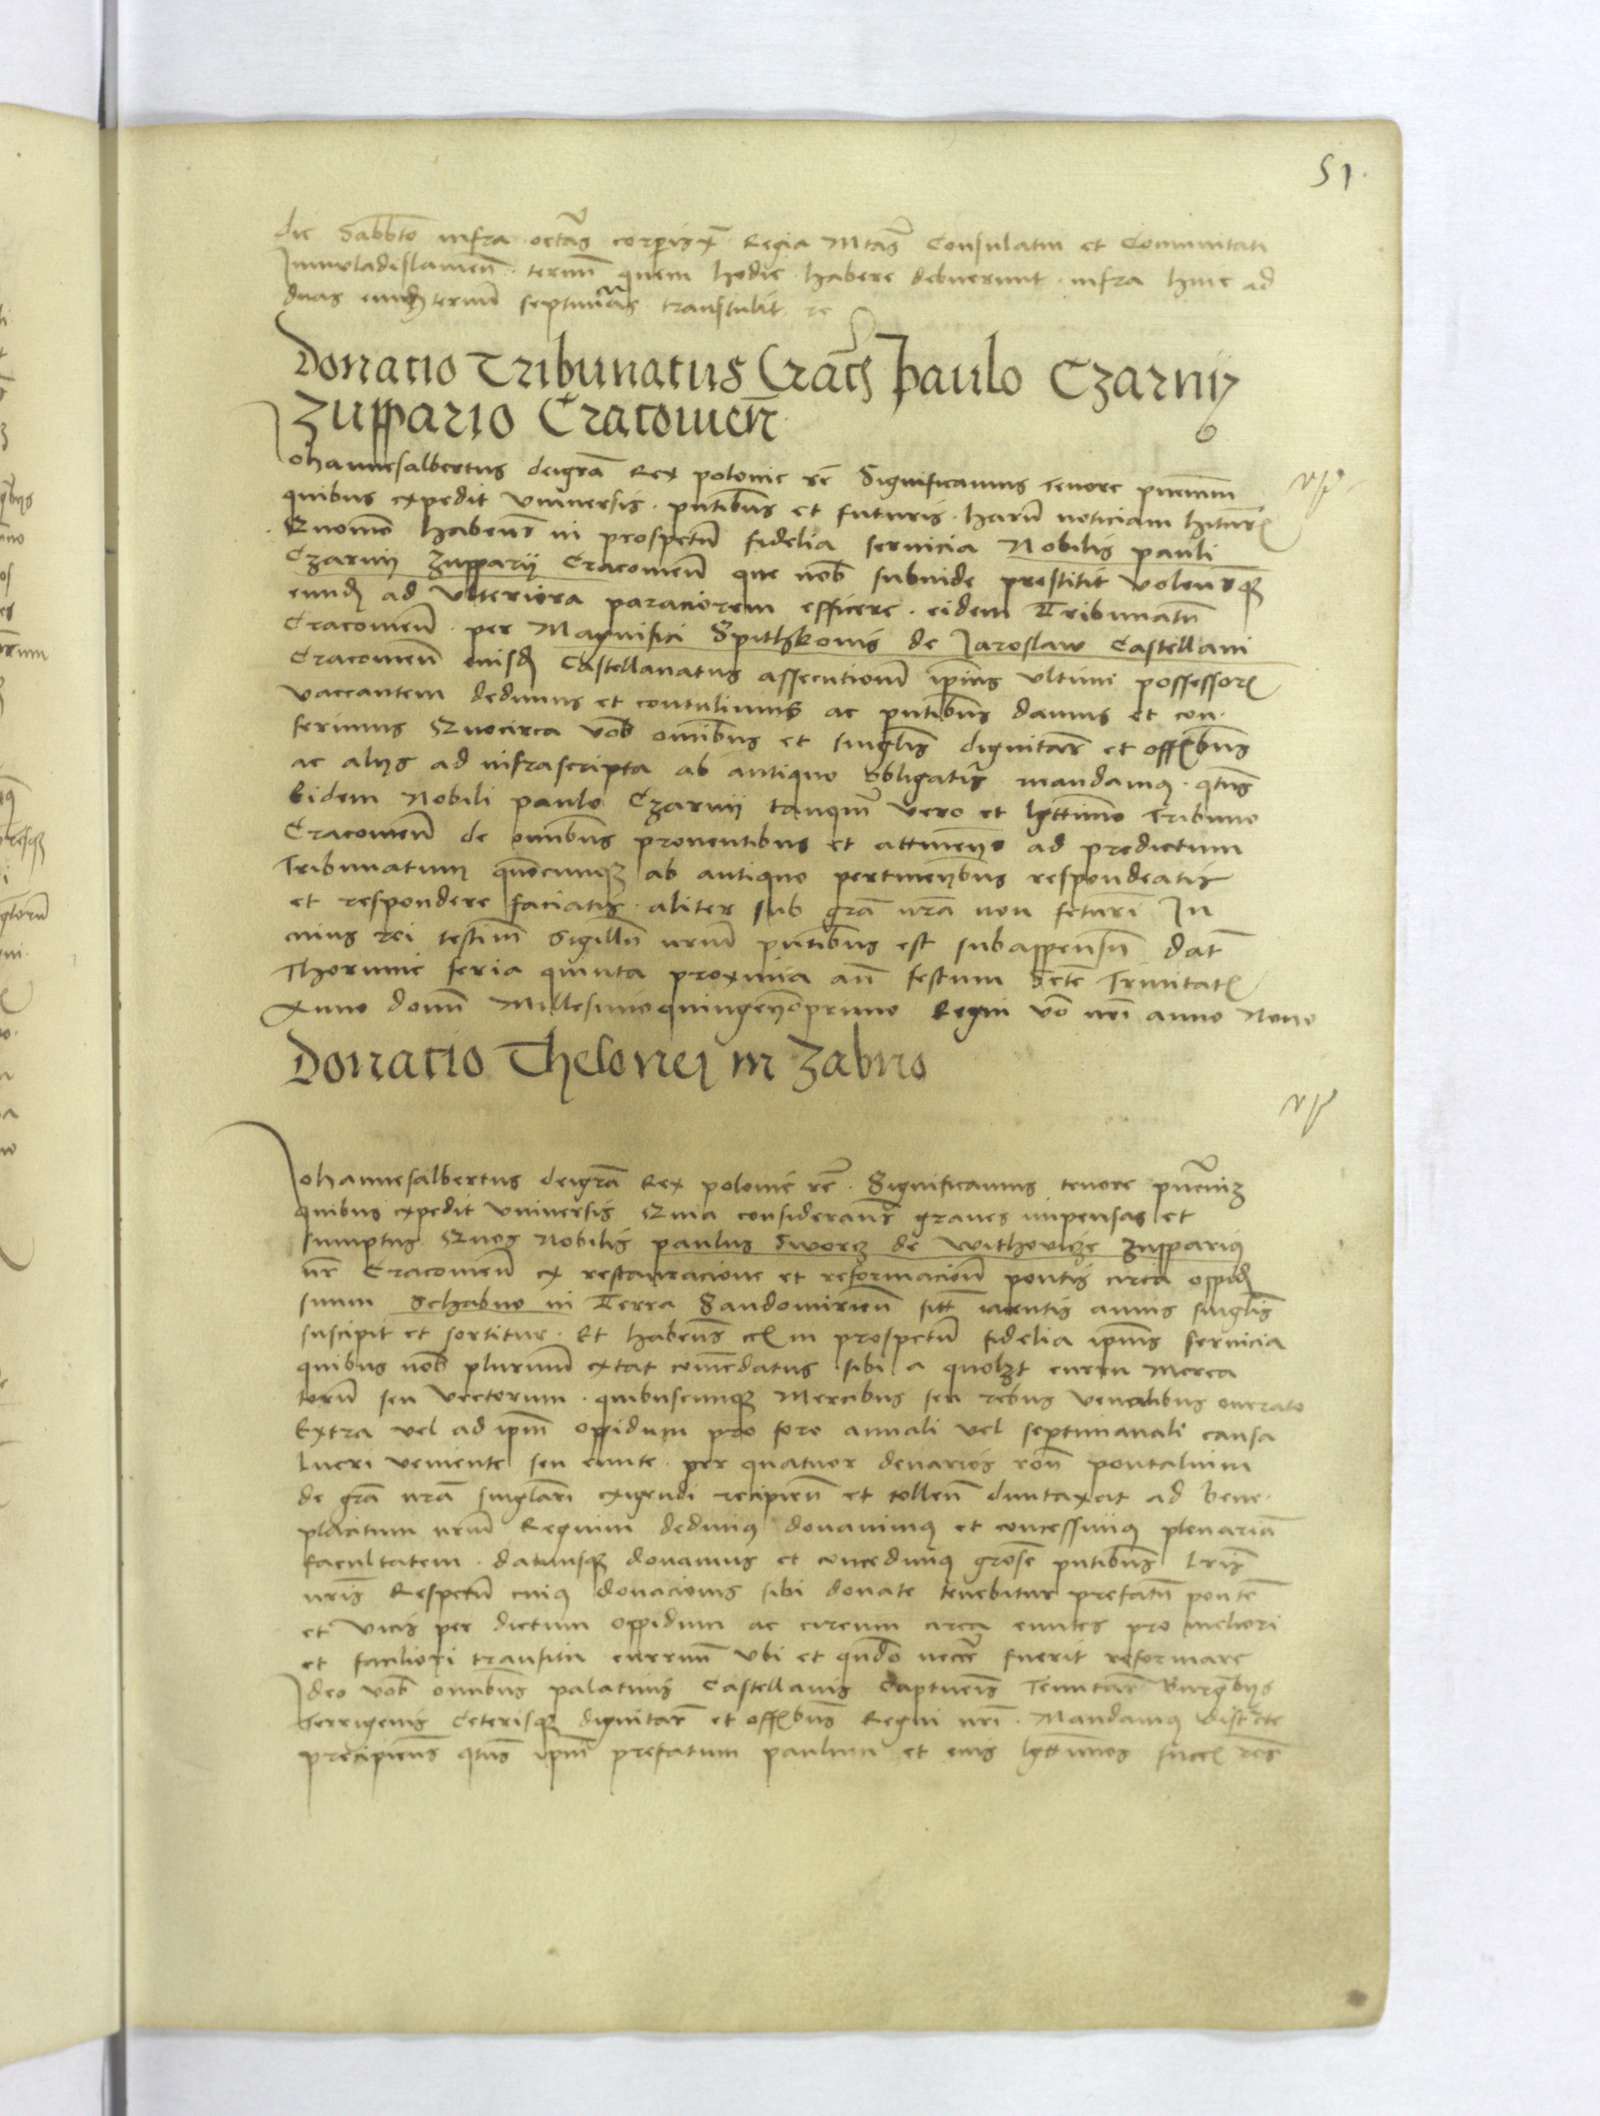 51.
die Sabbto infra octās corpis x̄ Regia Mtās Consulatui et Communitati
Juniuladislauien̄ termī quem hodie habere debuerunt infra hinc ad
duas eund termū septimās transtulit rc
Donatio Tribunatus Crac̄ Paulo Czarnij
Zuppario Cracouien̄
Johannesalbertus deigrā Rex polonie rc̄ Significamus tenore pn̄cium
quibus expedit vniuersis pn̄tibus et futuris harū noticiam hitur
Quomō haben̄s in prospctū fidelia seruicia Nobilis pauli
Czarnij Zupparij Cracouien̄ que nob subinde prestitit volen̄sq
eund ad vlteriora paraciorem efficere eidem Tribunatū
Cracouien̄ per Magnifici Spithkonis de Jaroslaw Castellani
Cracouien̄ euisd Castellanatus assecutionem ipius vltimi possessor
vaccantem dedimus et contulimus ac pn̄tibus damus et con-
ferimus Quocirca vob omībus et singlis dignitar et offbus
ac alijs ad infrascripta ab antiquo obligatis mandamus qtūs
Eidem Nobili paulo Czarnij tanqm̄ vero et lgttimo Tribuno
Cracouien̄ de omībus prouentibus et attinen̄ ad predictum
Tribunatum quōcumq ab antiquo pertinen̄bus respondeatis
et respondere faciatis aliter sub grā nrā non fcturi In
cuius rei testim̄ Sigillū nrum pn̄tibus est subappensū Dat̄
Thorunie feria quinta proxima an̄ festum Scte Trinitat
Anno domī Millesimoquingen̄oprimo Regni vō nri anno Nono
Donatio Thelonej in Zabno
Johannesalbertus deigrā Rex polonie rc̄ Significamus tenore pn̄cium
quibus expedit vniuersis Quia consideran̄s graues impensas et
sumptus Quos Nobilis paulus Sworcz de withovicze zupparius
nr Cracouien̄ ex restauracione et reformacione pontis circa oppid
suum Schabno in Terra Sandomirien̄ sitt annis singlis
suscipit et sortitur Et haben̄s in prospectū fidelia ipius seruicia
quibus nob plurimū extat com̄edatus sibi a quolzt curru Merca
torū seu vectorum quibuscumq Mercibus seu rebus venalibus onerato
Extra vel ad ipm̄ oppidum pro foro annali vel septimanali causa
Lucri veniente seu eunte per quatuor denarios ron̄ pontalium
de grā nrā singlari exigendi recipien̄ et tollen̄ duntaxat ad bene-
placitum nrum Regium dedimus donauimus et concessimus plenariā
facultatem damusq donamus et concedimus pn̄tibus Lris
nris Respectū cuius donacionis sibi donate tenebitur prefatū pontē
et vias per dictum oppidum ac circum circa euntes pro meliori
et faciliori transitu curruū vbi et qn̄do necē fuerit reformare
Ideo vob omībus palatinis Castellanis Captneis Tenutar Burgbijs
Terrigenis Ceterisq dignitar et offbus Regni nri Mandamus
precipien̄s qtūs ipm̄ prefatum paulum et eius lgttimos succ